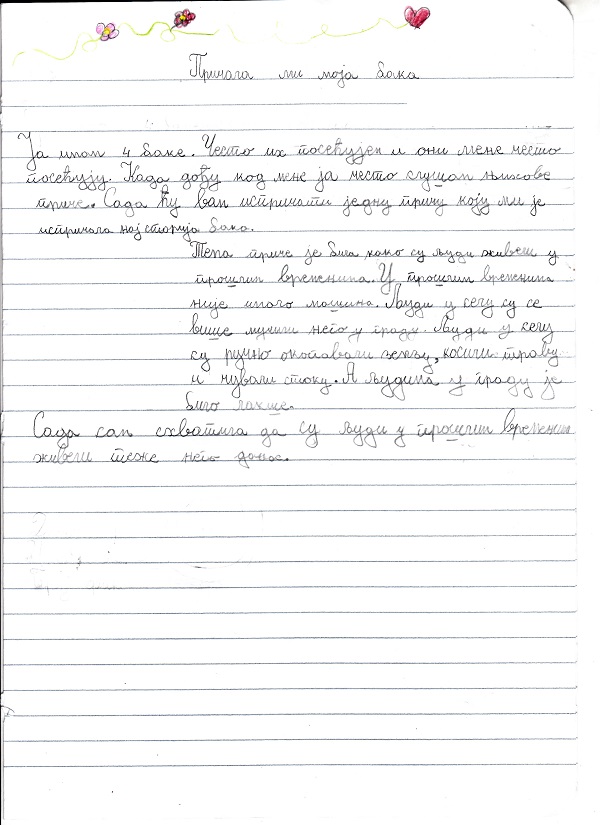 Причала ми моја бака
Ја имам 4 баке. Често их посећујем и они мене често
посећују. Када дођу код мене ја често слушам њихове
приче. Сада ћу вам испричати једну причу коју ми је
испричала нај старија бака.
Тема приче је била како су људи живели у
прошлим временима. У прошлим временима
није имало машина. Људи у селу су се
више мучили него у граду. Људи у селу
су ручно окопавали земљу, косили траву
и чували стоку. А људима у граду је
било лакше.
Сада сам схватила да су људи у прошлим временима
живели теже него данас.